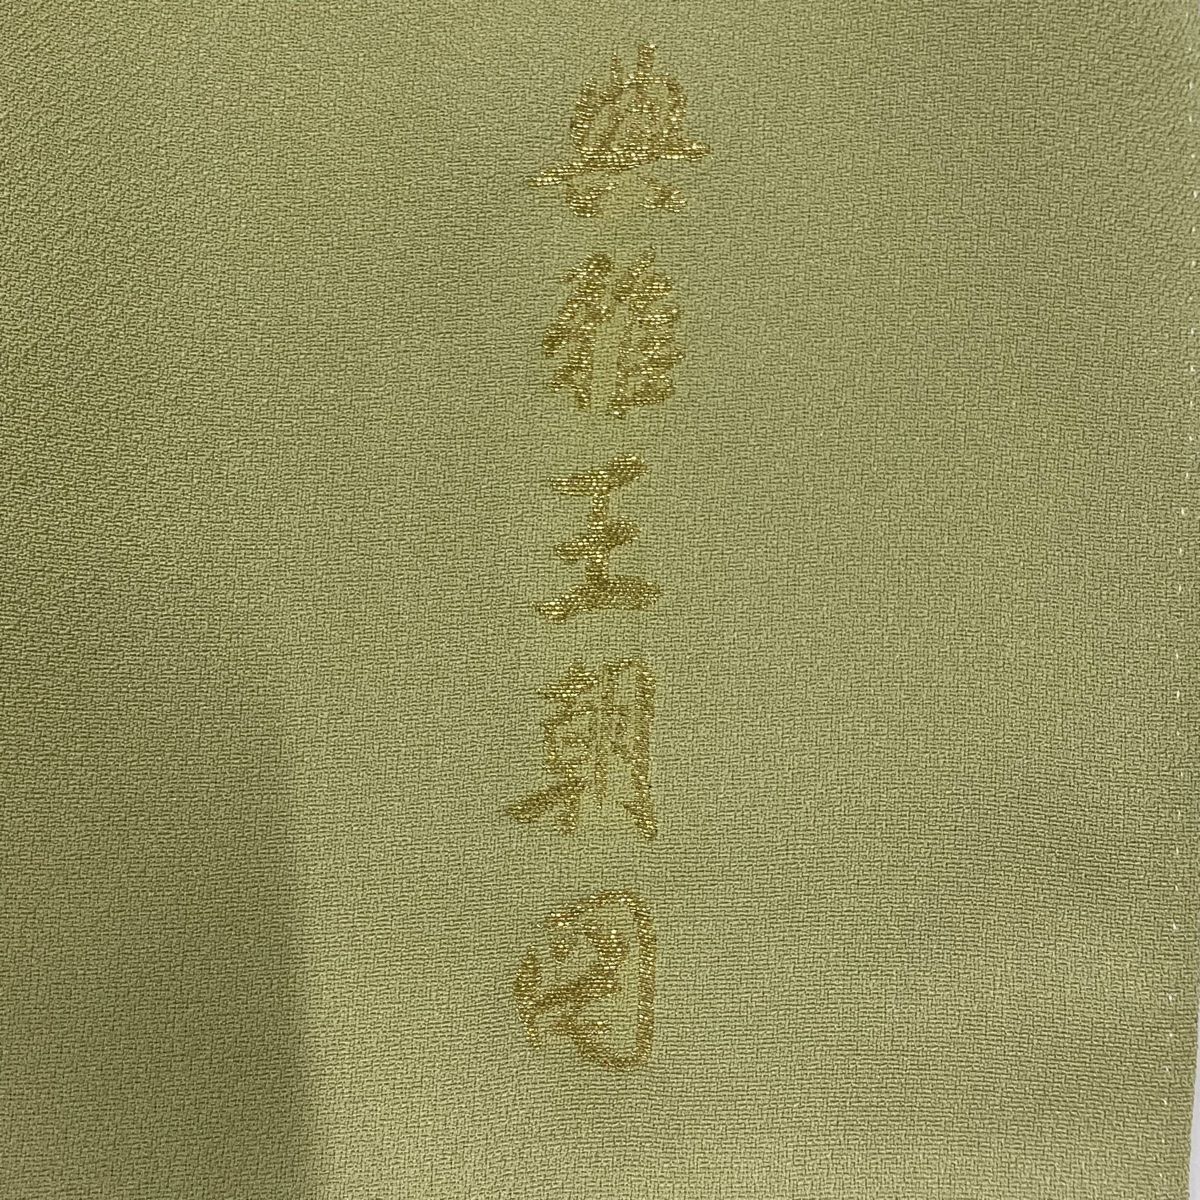 典雅王朝図